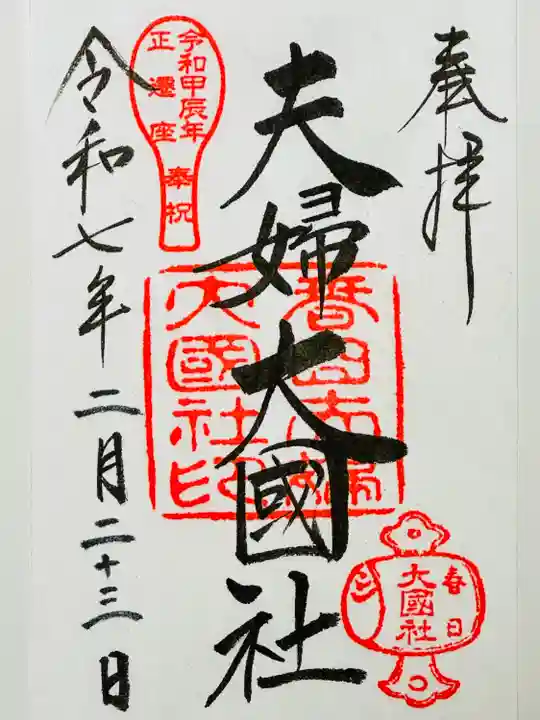 奉拝
夫婦大國社
令和甲辰年
正遷座
奉祝
春日
大國社
大國社印
令和七年二月二十三日